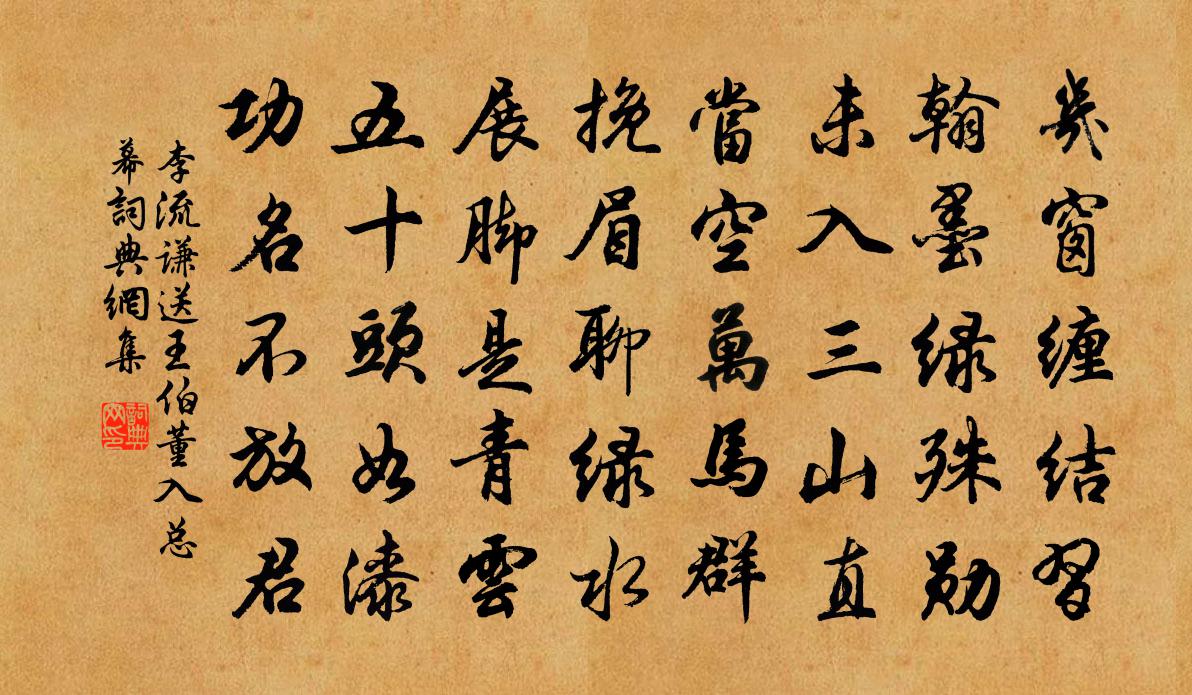 幾窗缠结習
翰墨绿殊勋
未入三山直
當空萬馬群
挽眉聊绿水
展脚是青雲
五十頭如漆
功名不放君
李流谦送王伯董入总
幕詞典網集
詞典
网印